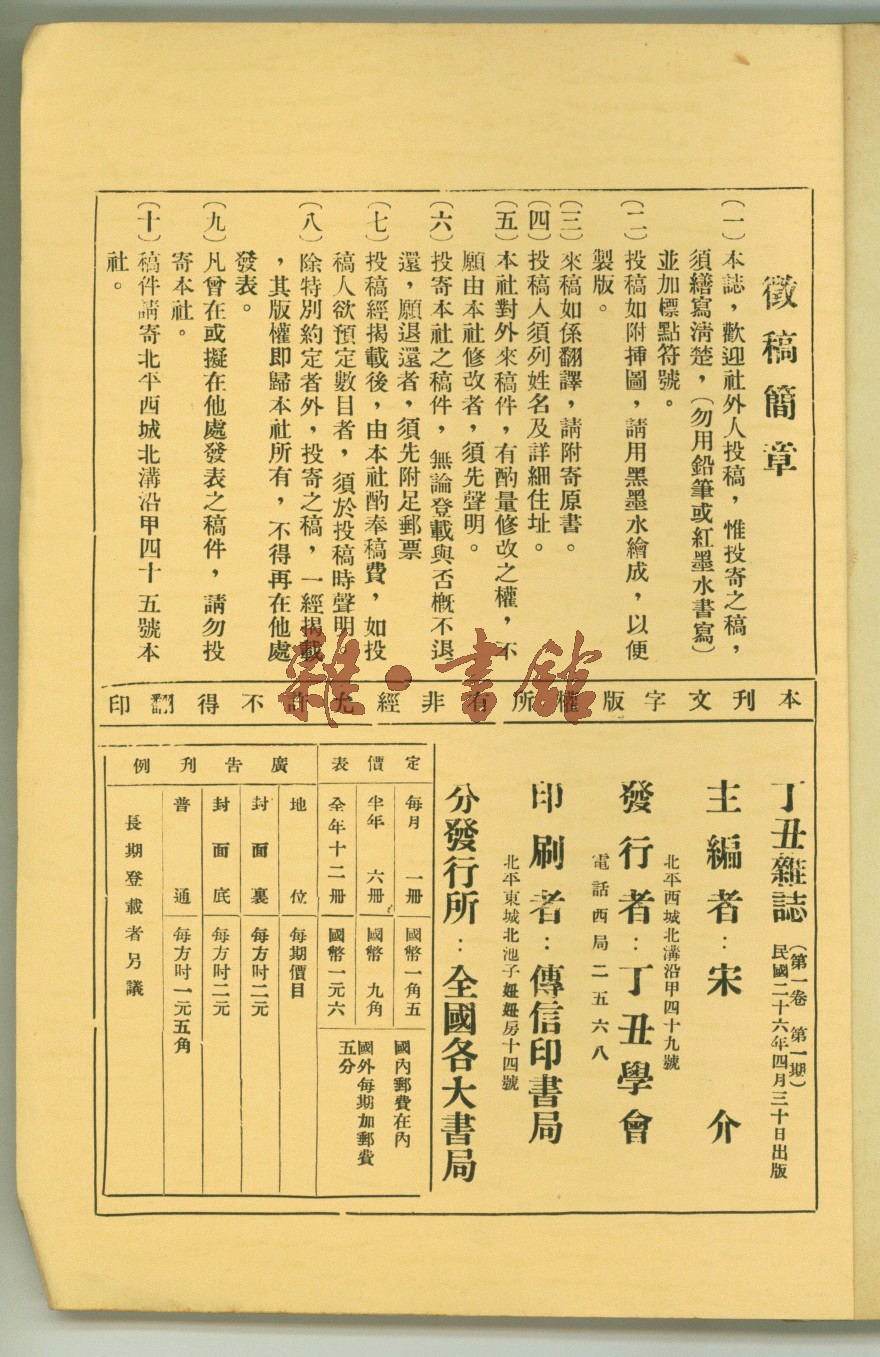 徵稿簡章
(一)本誌，歡迎社外人投稿，惟投寄之稿，
須繕寫淸楚，(勿用鉛筆或紅墨水書寫)
並加標點符號。
(二)投稿如附揷圖，請用黑墨水繪成，以便
製版。
(三)來稿如係翻譯，請附寄原書。
(四)投稿人須列姓名及詳細住址。
(五)本社對外來稿件，有酌量修改之權，不
願由本社修改者，須先聲明。
(六)投寄本社之稿件，無論登載與否槪不退
還，願退還者，須先附足郵票
(七)投稿經揭載後，由本社酌奉稿費，如投
稿人欲預定數目者，須於投稿時聲明。
(八)除特別約定者外，投寄之稿，一經揭載
，其版權即歸本社所有，不得再在他處
發表。
(九)凡曾在或擬在他處發表之稿件，請勿投
寄本社。
(十)稿件請寄北平西城北溝沿甲四十五號本
社。
本刊文字版權所有非經允許不得翻印
雜·書館
丁丑雜誌
(第一卷 第一期)
民國二十六年四月三十日出版
主編者：宋介
北平西城北溝沿甲四十九號
發行者：丁丑學會
電話西局二五六八
印刷者：傳信印書局
北平東城北池子妞妞房十四號
分發行所：全國各大書局
定價表
每月 一冊 國幣一角五
半年 六冊 國幣 九角
全年十二冊 國幣一元六
國內郵費在內
國外每期加郵費
五分
廣告刊例
地位 每期價目
封面裏 每方吋二元
封面底 每方吋二元
普通 每方吋一元五角
長期登載者另議